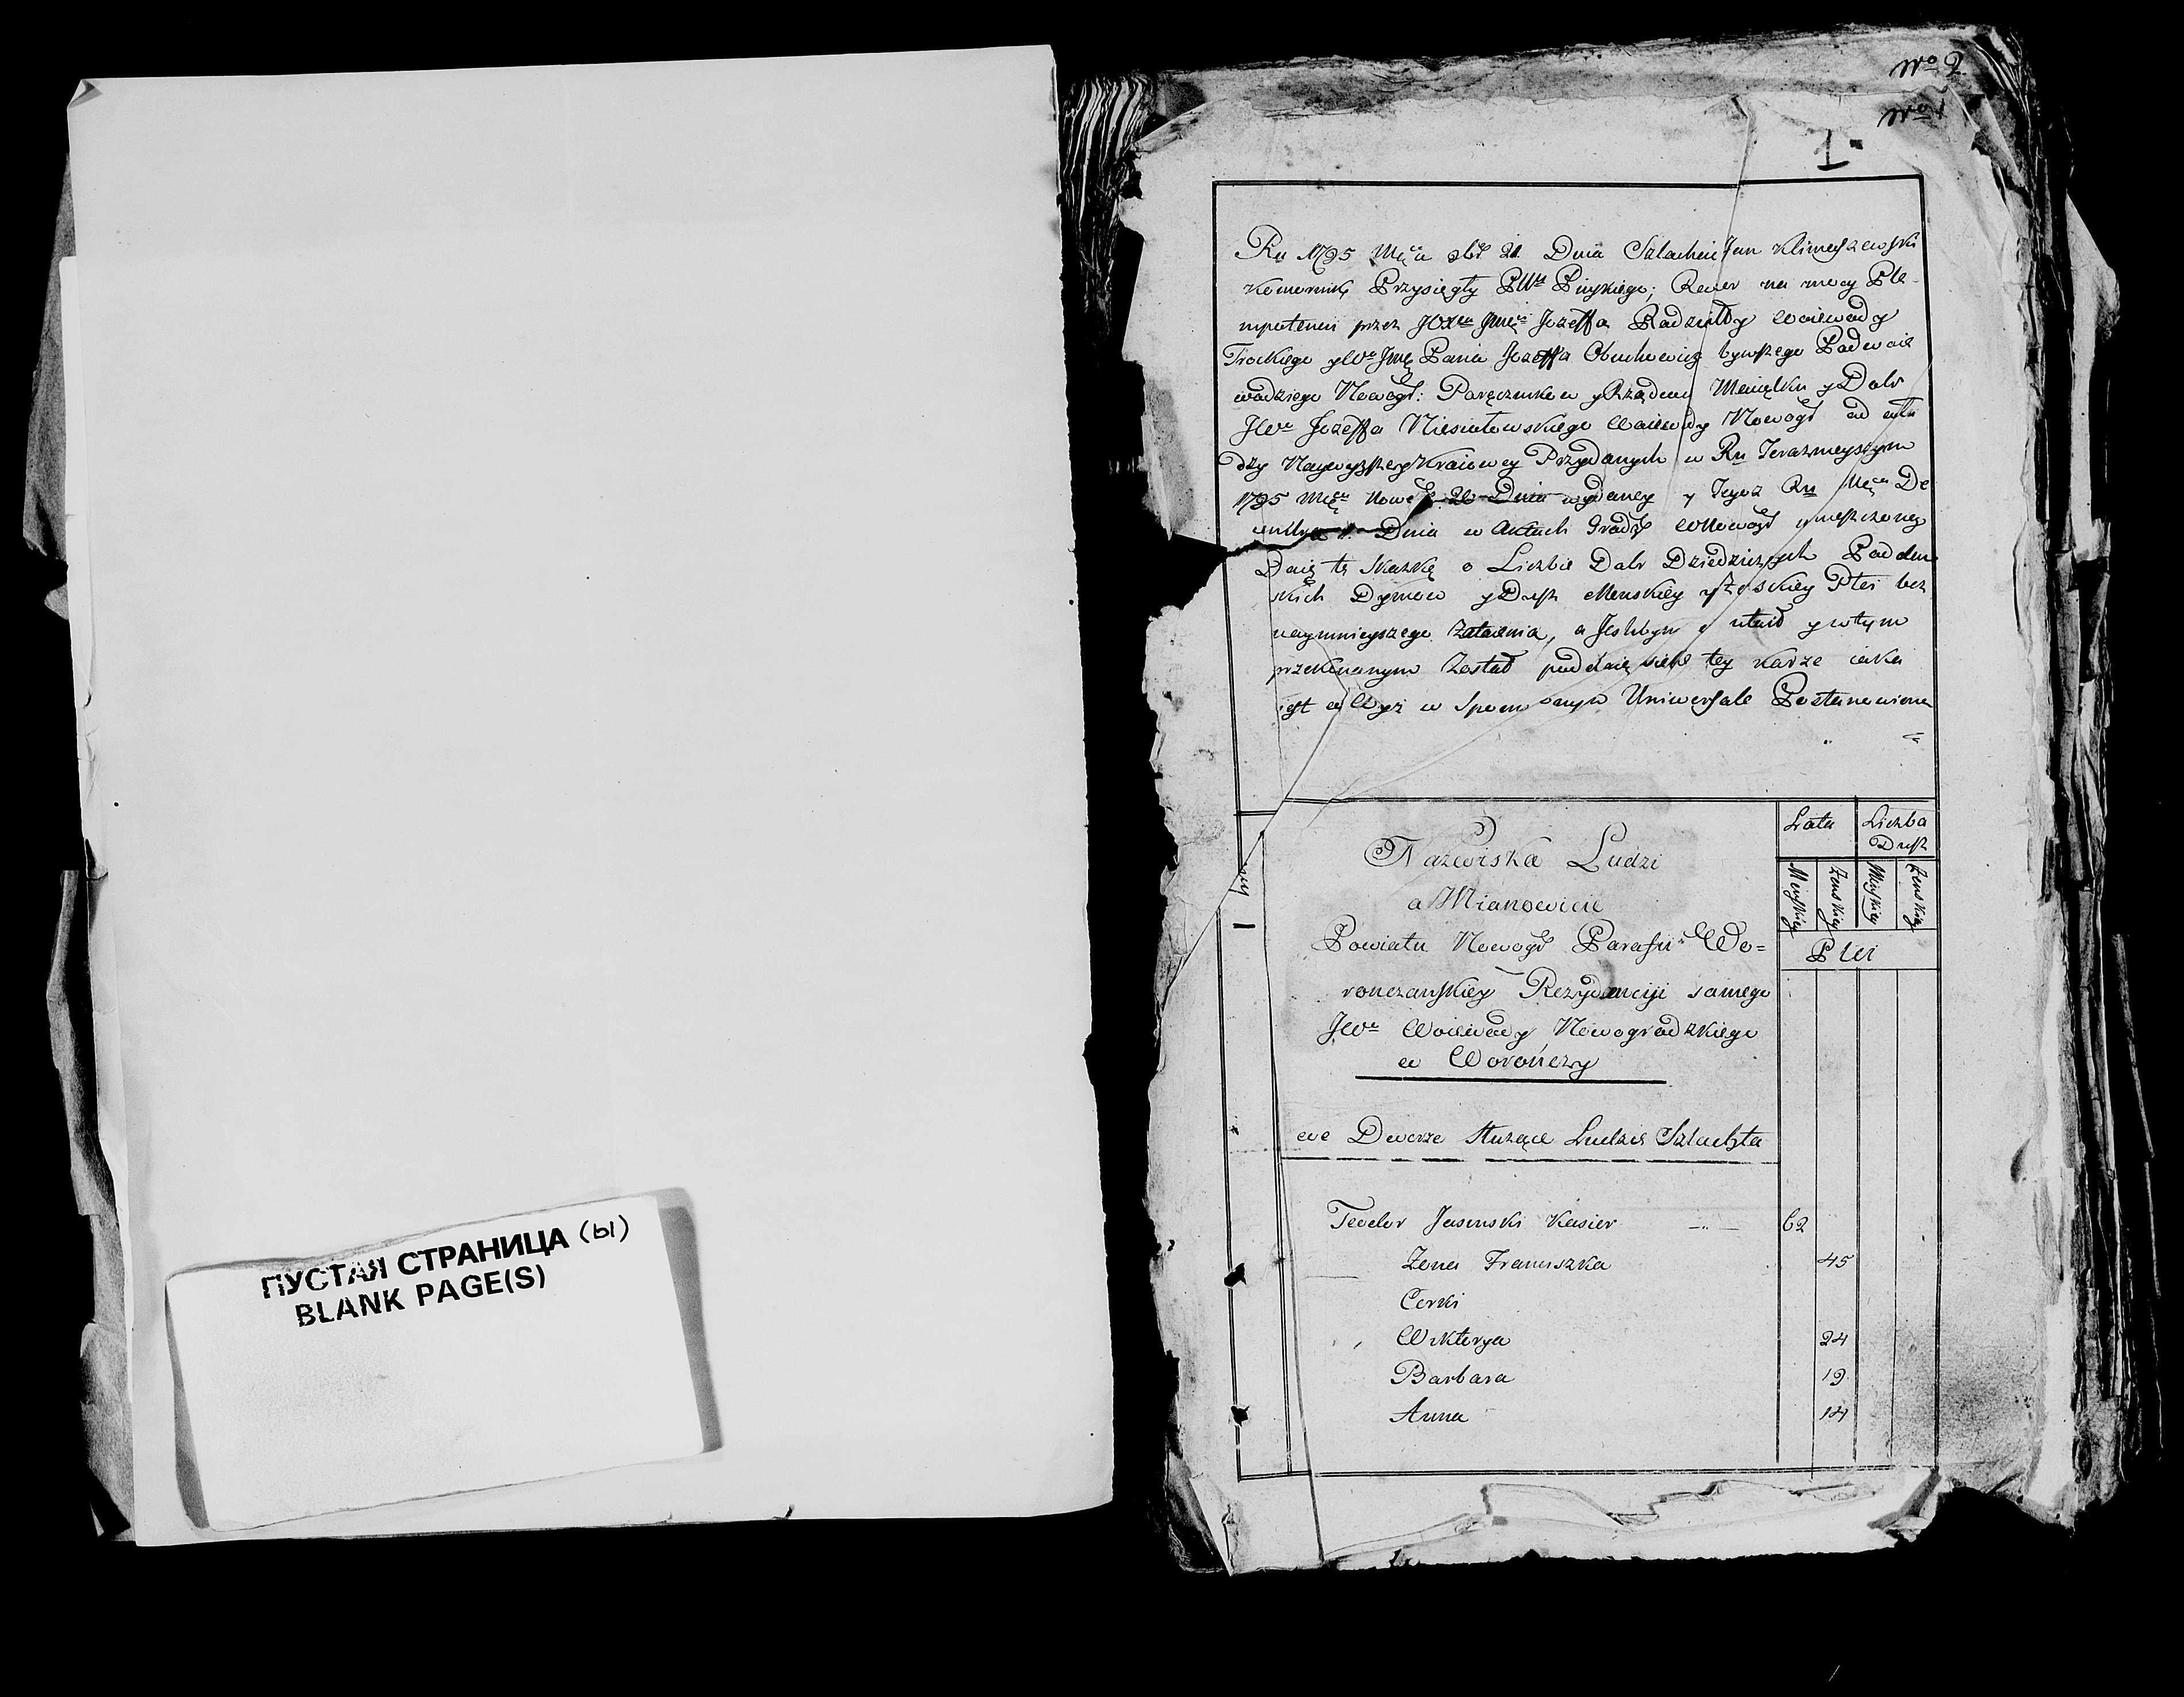 ПУСТАЯ СТРАНИЦА (ы)
BLANK PAGE(S)
No 2
No 1
1
Ru 1795 Mca 21 Dnia Szlachcic Jan Klimaszewski
Komornik Przysięgły Pińskiego; na mocy Ple-
nipotencij przez Jmci Jozeffa Radziwiłły Woiewody
Trockiego y Jmc Pana Jozeffa Obuchowicza bywszego Podwoie
wodziego Nowogd: Poręcznikow y Rządcow Maiątku y Dobr
JWo Jozeffa Niesiołowskiego Woiewody Nowogd od
dzy Naywyzszey Kraiowey Przydanych w Ru Teraznieyszym
1795 Mca 20 Dnia wydaney y Tegoż Ru Mca De
1 Dnia w Aktach Grodz Nowogd umieszczoney
Daię tę Skazkę o Liczbie Dobr Dziedzicznych Poddan
skich Dymow y Dusz Menskiey y Zenskiey Płci bez
naymnieyszego Zataienia, a Jeslibym utaił y w tym
przekonanym Został poddaię siebie tey karze iaka
iest w Uniwersale Postanowiona
Nazwiska Ludzi
a Mianowicie
Powiatu Nowogd Parafii Wo=
ronczanskiey Rezydenciji samego
JWo Woiewody Nowogrodzkiego
w Woronczy
Lata
Liczba
Dusz
Menskiey
Zenskiey
Menskiey
Zenskiey
Płci
1
we Dworze Służące Ludzie Szlachta
Teodor Jasinski Kasier 62
Zona Franciszka 45
Corki
Wiktorya 24
Barbara 19
Anna 14